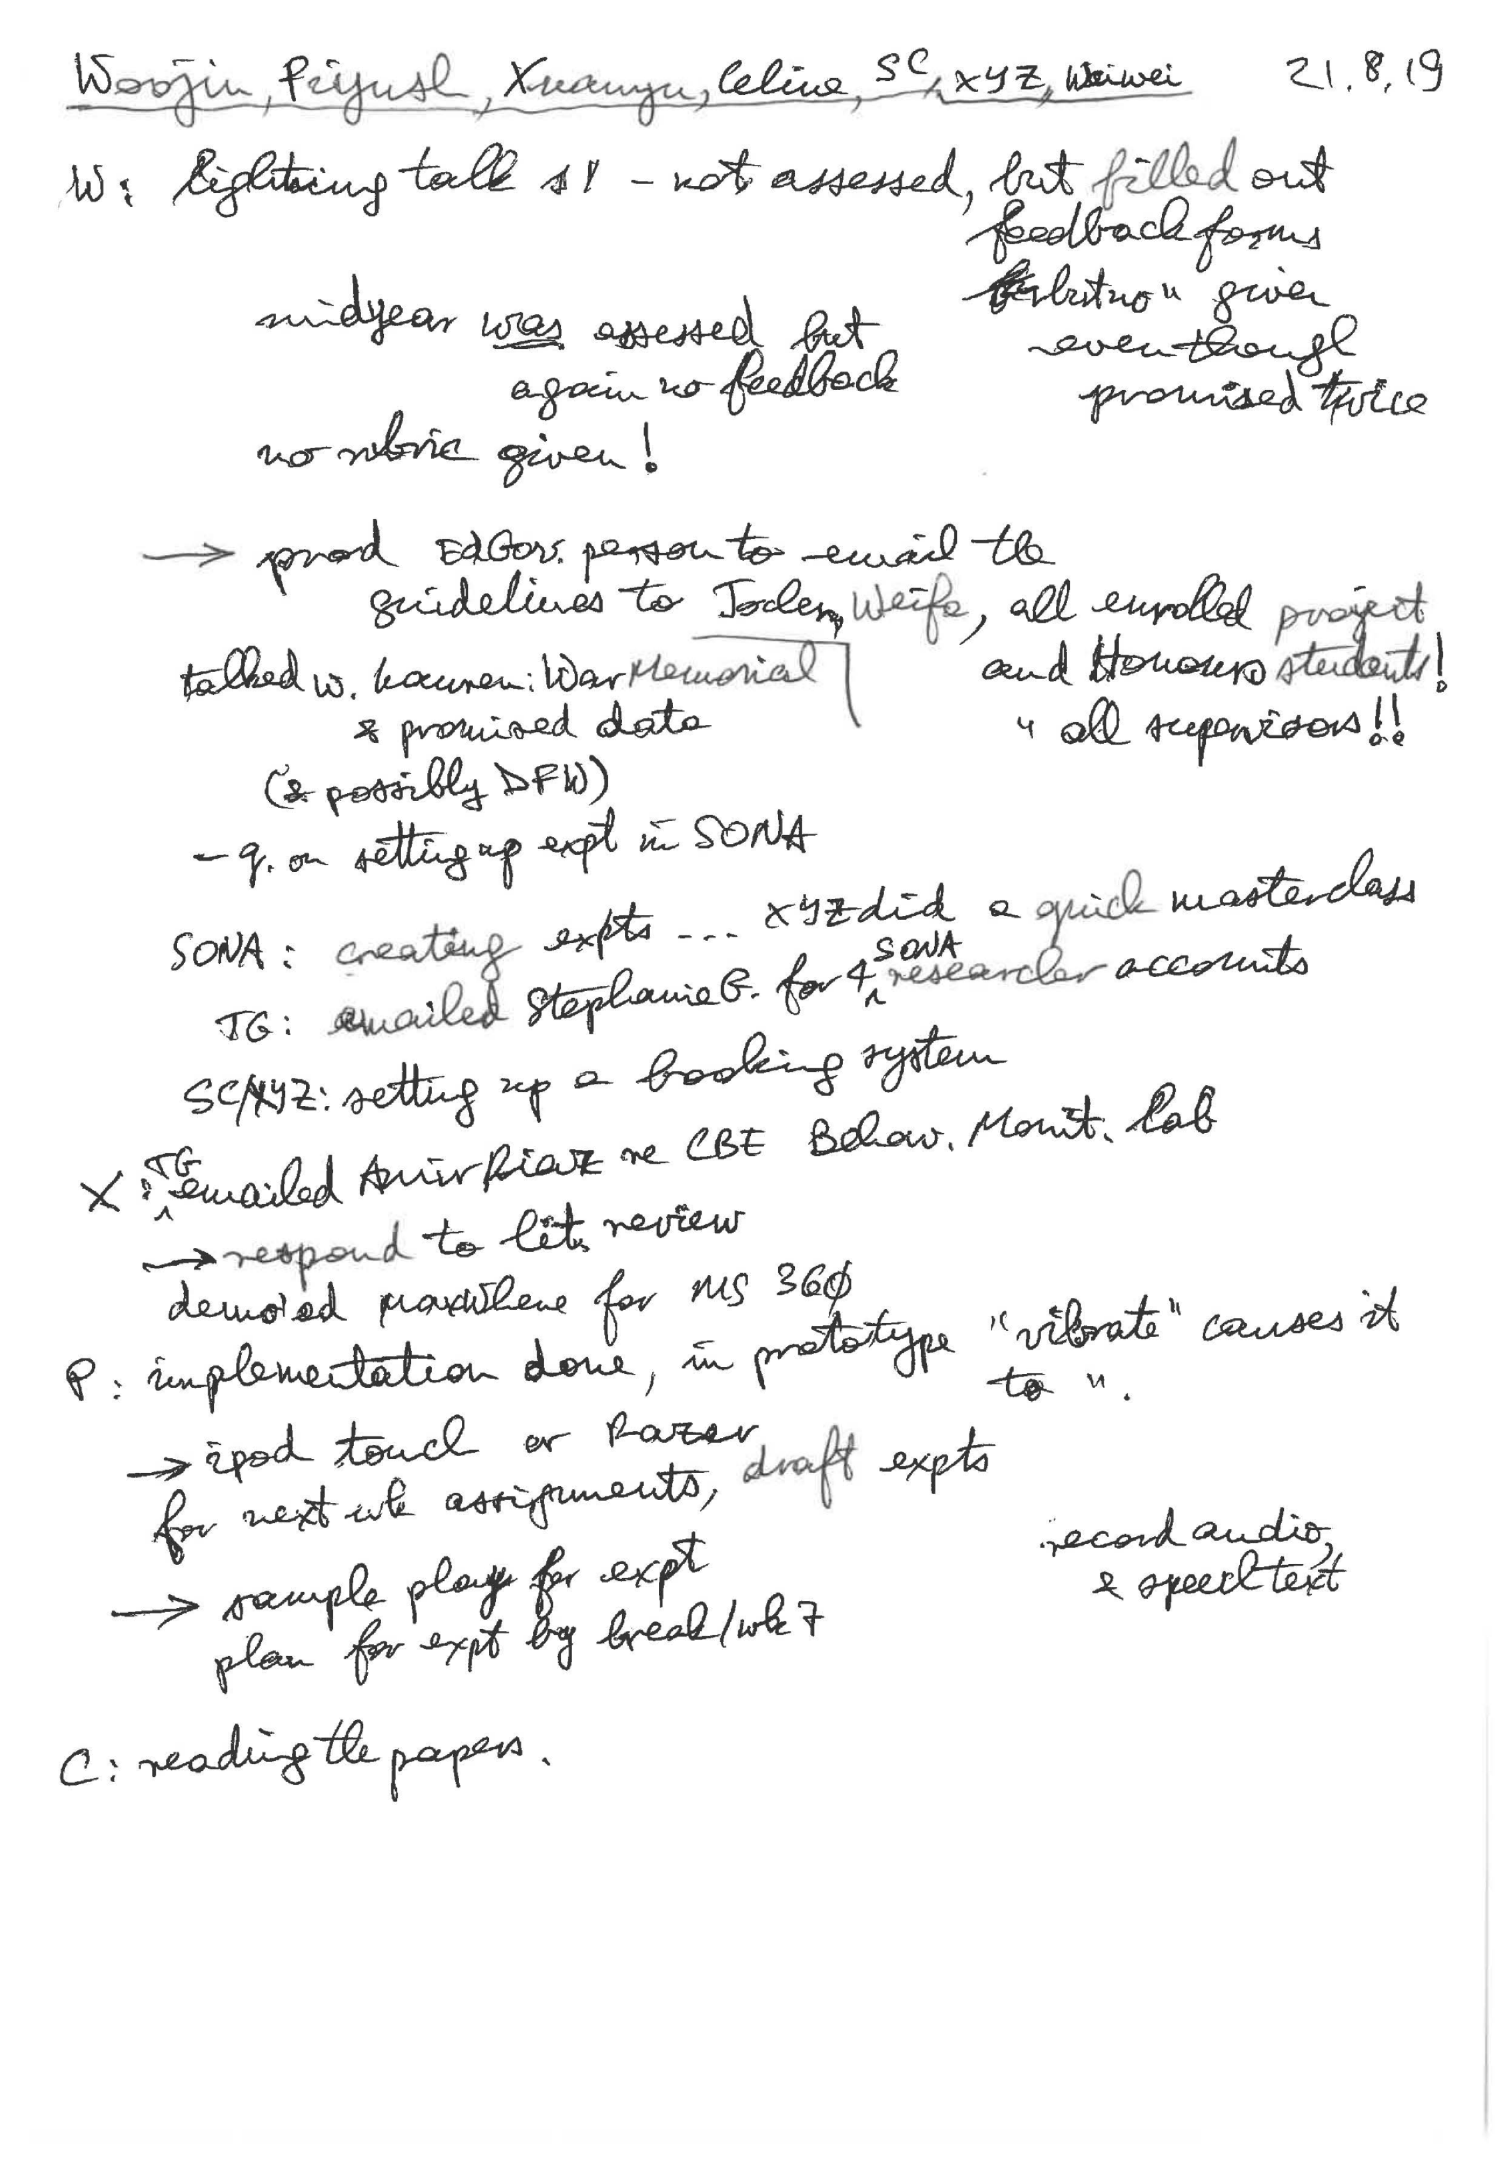 Woojin, Piyush, Xuanyu, Celine, SC, XYZ, Weiwei 21.8.19
W: Lightning talk s1 – not assessed, but filled out
feedback forms
but no " given
even though
promised twice
midyear was assessed but
again no feedback
no rubric given!
→ prod EdGov. person to email the
guidelines to Jochen, Weifa, all enrolled project
and Honours students!
" all supervisors!!
talked w. Lauren: War Memorial
& promised data
(& possibly DFW)
– q. on setting up expt in SONA
SONA: creating expts ... XYZ did a quick masterclass
TG: emailed Stephanie G. for 4 SONA researcher accounts
SC/XYZ: setting up a booking system
X: TG emailed Amir Riaz re CBE Behav. Monit. Lab
→ respond to lit. review
demo'ed MaxWhere for MS 360
P: implementation done, in prototype "vibrate" causes it
to ".
→ ipod touch or Razer
for next wk assignments, draft expts
record audio,
& speech text
→ sample plays for expt
plan for expt by break/wk 7
C: reading the papers.